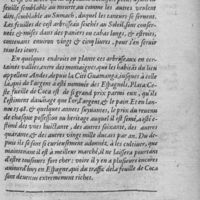 feuille semblable au meurte, ou comme aucuns veulent
dire semblable au Sumach, duquel les tanneurs se servent.
Les fueilles de cest arbrisseau seichées au Soleil, sont conser-
vées & mises dans des paniers ou cabas longs, & estroits,
contenans environ vingt & cinq livres, pour s'en servir
tous les iours.
En quelques endroits on plante ces arbrisseaux en cer-
taines vallées, entre des montaignes, que les habitãs du lieu
appellent Andes, depuis la Cité Guamanga, iusques à celle
là, qui de l'argent a esté nommée des Espagnols, Plata. Ceste
fueille de Coca est de si grand prix parmi eux, qu'ils
l'estiment davantage que l'or, l'argent, & le pain. Et en l'an-
née 1548. & quelques années ensuivant, le prix du revenu
de chaque possession ou heritage auquel il est semé, a esté
des uns vingt huit, des autres soixante, des autres
quarante & des autres vingt mille ducats par an. Du de-
puis ils se sont si curieusement adonnés, à les cultiver, que
maintenant on est à meilleur marché, il ne laissera pourtant
d'estre tousiours fort cher: voire il y en a plusieurs encore
auiourd'huy en Espagne, qui du traffic de la fueille de Coca
sont devenus extremement riches.